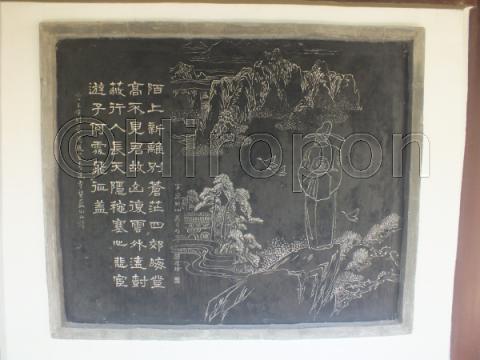 陌上新離別蒼茫四郊晦登
高不見君故山復雲外遠樹
蔽行人長天隱秋塞心悲宦
遊子何處飛征蓋
©Hiropon